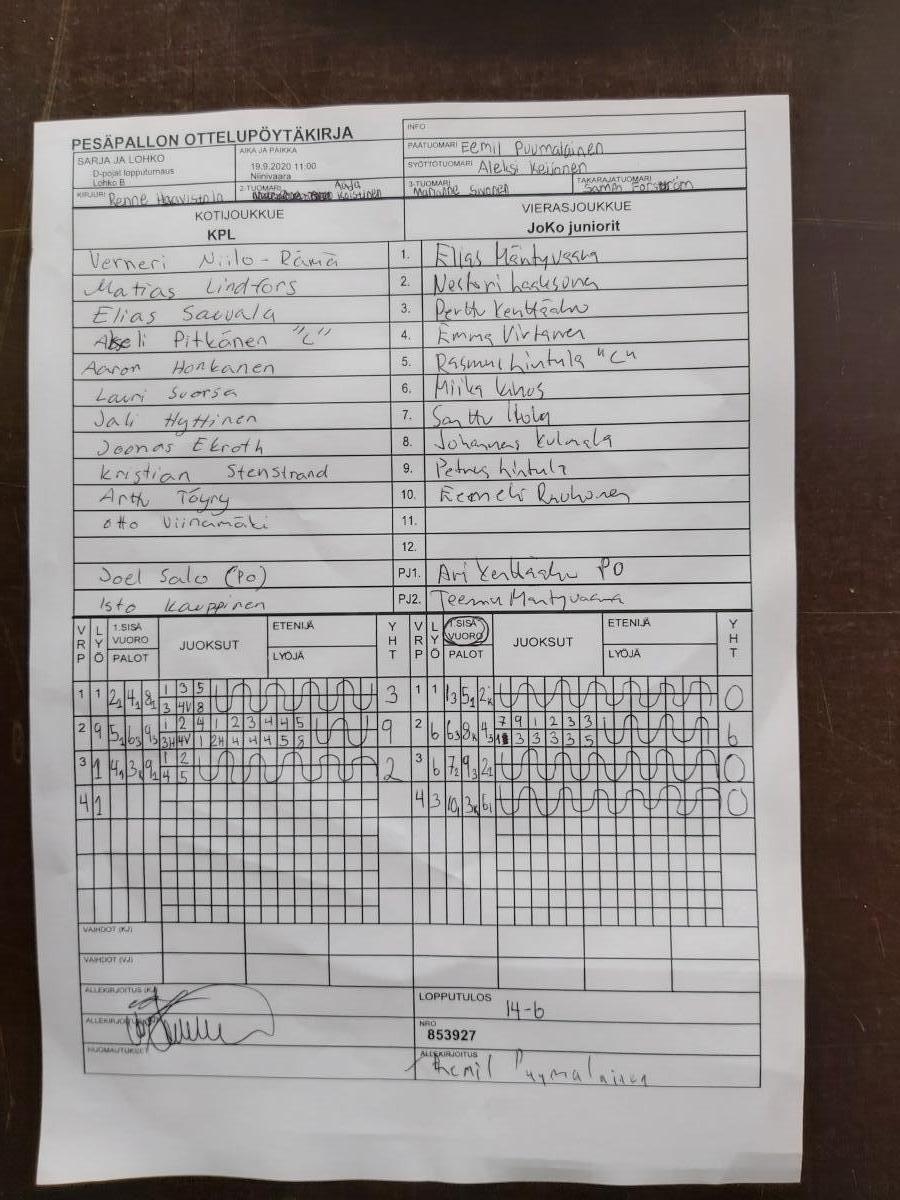 PESÄPALLON OTTELUPÖYTÄKIRJA
INFO
SARJA JA LOHKO
D-pojat lopputurnaus
Lohko B
AIKA JA PAIKKA
19.9.2020 11:00
Niinivaara
PÄÄTUOMARI Eemil Puumalainen
SYÖTTÖTUOMARI Aleksi Keijonen
KIRJURI Renne Haavistola
2-TUOMARI
3-TUOMARI Marianne
TAKARAJATUOMARI Forsström
KOTIJOUKKUE
KPL
VIERASJOUKKUE
JoKo juniorit
Verneri Niilo-Rämä 1. Elias Mäntyvaara
Matias Lindfors 2. Nestori
Elias Sauvala 3. Perttu
Akseli Pitkänen "C" 4. Emma Virtanen
Aaron Honkanen 5. Rasmus Hintula "C"
Lauri Suorsa 6. Miika
Jali Hyttinen 7. Santtu
Joonas Ekroth 8. Johannes Kulmala
Kristian Stenstrand 9. Petrus Hintula
Arttu Töyry 10. Eemeli
Otto Viinamäki 11.
12.
Joel Salo (PO) PJ1. Ari PO
Isto Kauppinen PJ2. Teemu Mäntyvaara
VRP LYÖ 1.SISÄ VUORO PALOT JUOKSUT ETENIJÄ LYÖJÄ YHT VRP LYÖ 1.SISÄ VUORO PALOT JUOKSUT ETENIJÄ LYÖJÄ YHT
1 1 2₁ 4₁ 8₁ 1 3 5 3 1 1 1₃ 5₁ 0
3 4V 8
2 9 1 2 4 1 2 3 4 4 5 9 2 6 7 9 1 2 3 3 6
3H 4V 1 2H 4 4 4 5 8 3 3 3 3 5
3 1 1 2 2 3 6 7₂ 9₃ 2₁ 0
4 5
4 1 4 3 0
VAIHDOT (KJ)
VAIHDOT (VJ)
ALLEKIRJOITUS (KJ)
LOPPUTULOS
14-6
NRO
853927
HUOMAUTUKSET
ALLEKIRJOITUS
Eemil Puumalainen